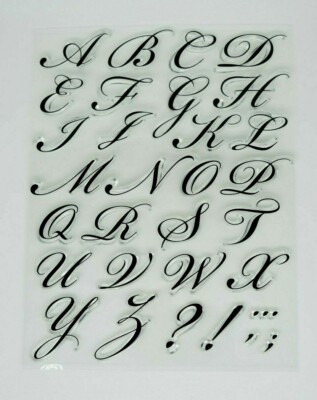 A B C D
E F G H
I J K L
M N O P
Q R S T
U V W X
Y Z ? ! , , , . . ;